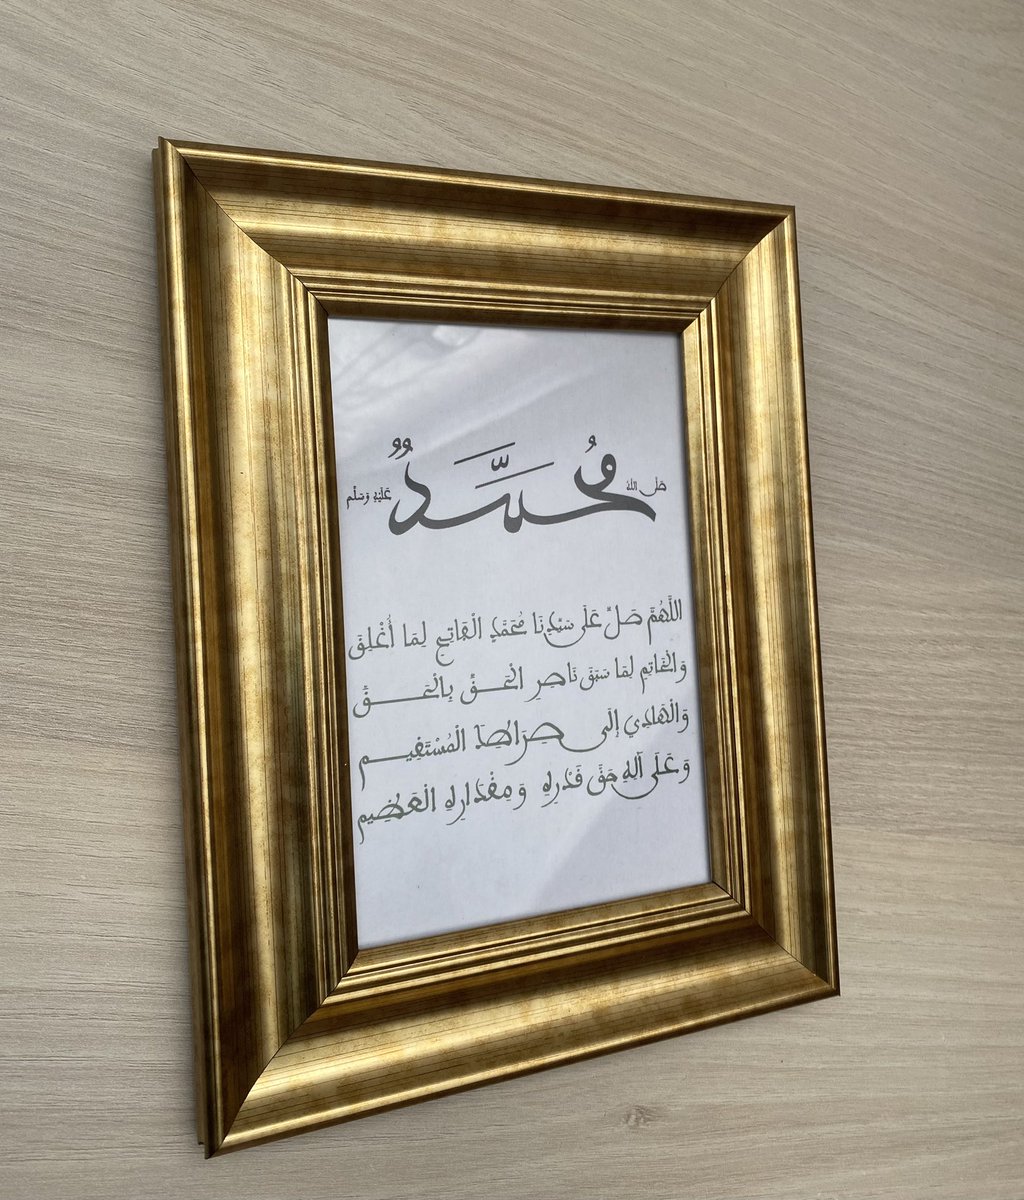 صَلَّى اللهُ
مُحَمَّدٌ
عَلَيْهِ وَسَلَّم
اللَّهُمَّ صَلِّ عَلَى سَيِّدِنَا مُحَمَّدٍ الْفَاتِحِ لِمَا أُغْلِقَ
وَالْخَاتِمِ لِمَا سَبَقَ نَاصِرِ الْحَقِّ بِالْحَقِّ
وَالْهَادِي إِلَى صِرَاطِكَ الْمُسْتَقِيمِ
وَعَلَى آلِهِ حَقَّ قَدْرِهِ وَمِقْدَارِهِ الْعَظِيمِ